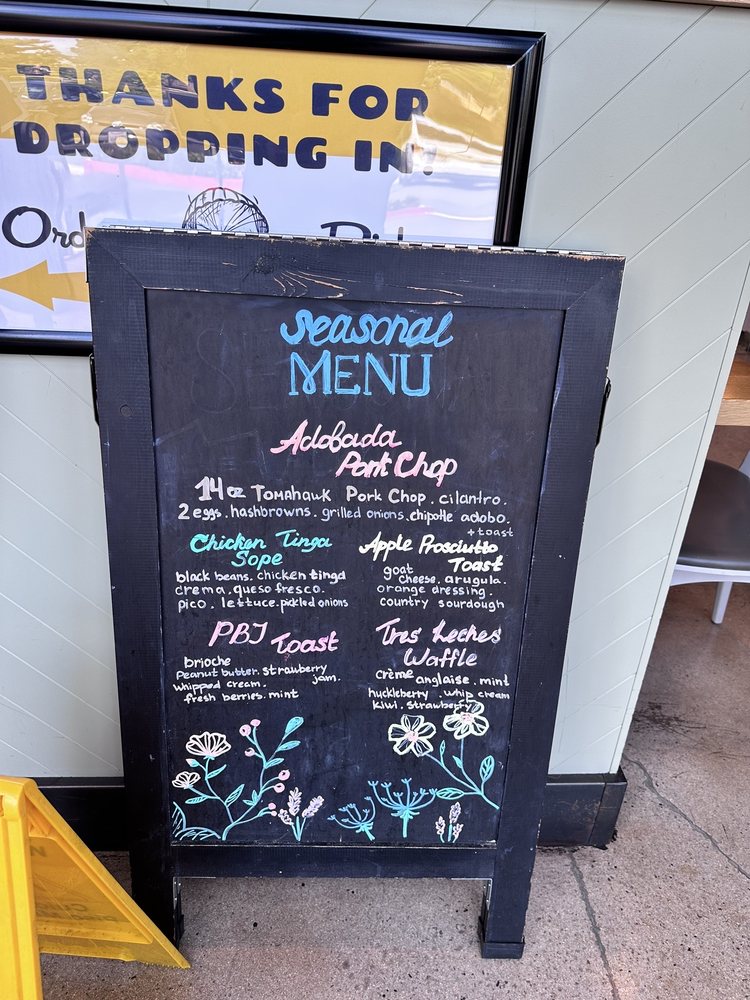 THANKS FOR
DROPPING IN!
Ord
seasonal
MENU
Adobada
Pork Chop
14oz Tomahawk Pork Chop. cilantro.
2 eggs. hashbrowns. grilled onions. chipotle adobo.
+ toast
Chicken Tinga
Sope
black beans. chicken tinga
crema. queso fresco.
pico. lettuce. pickled onions
Apple Prosciutto
Toast
goat
cheese. arugula.
orange dressing.
country sourdough
PBJ Toast
brioche
Peanut butter. strawberry
jam.
whipped cream.
fresh berries. mint
Tres Leches
Waffle
crème anglaise. mint
huckleberry. whip cream
kiwi. strawberry